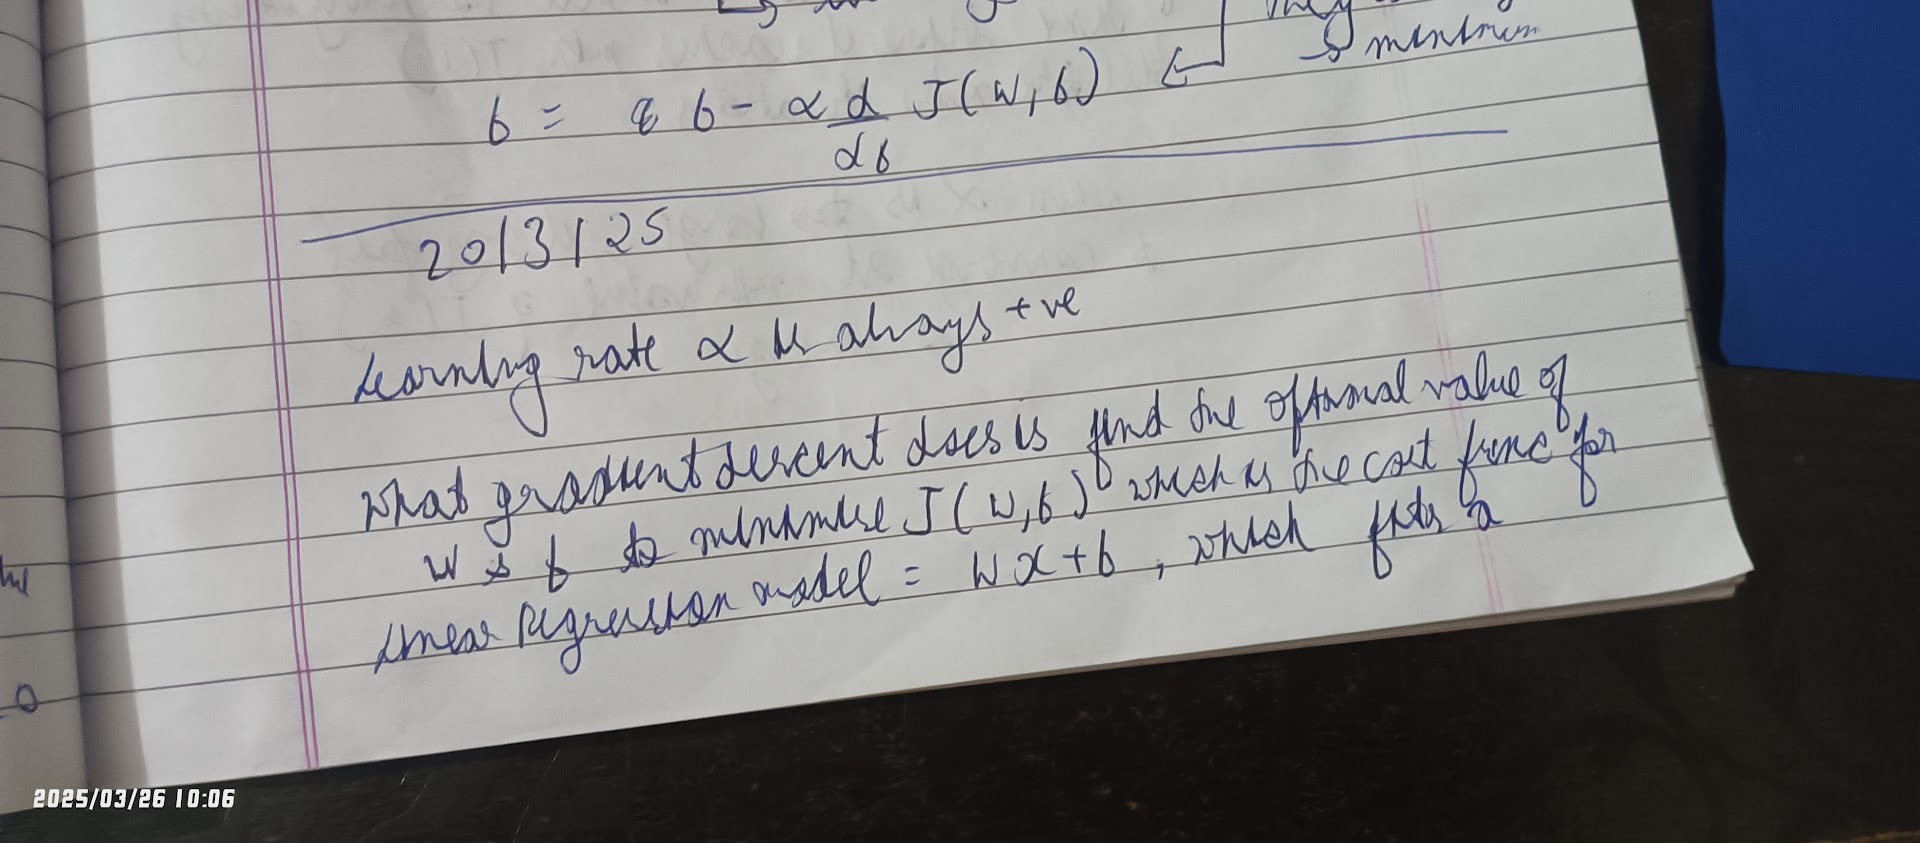 minimum
b = b - α d/db J(w,b)
20/3/25
Learning rate α is always +ve
What gradient descent does is find the optimal value of
w & b to minimise J(w,b) which is the cost func for
Linear Regression model = wx+b, which fits a
2025/03/26 10:06